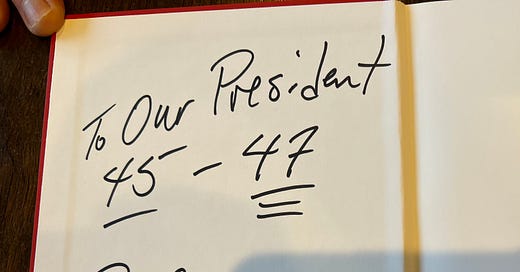 To Our President
45 - 47